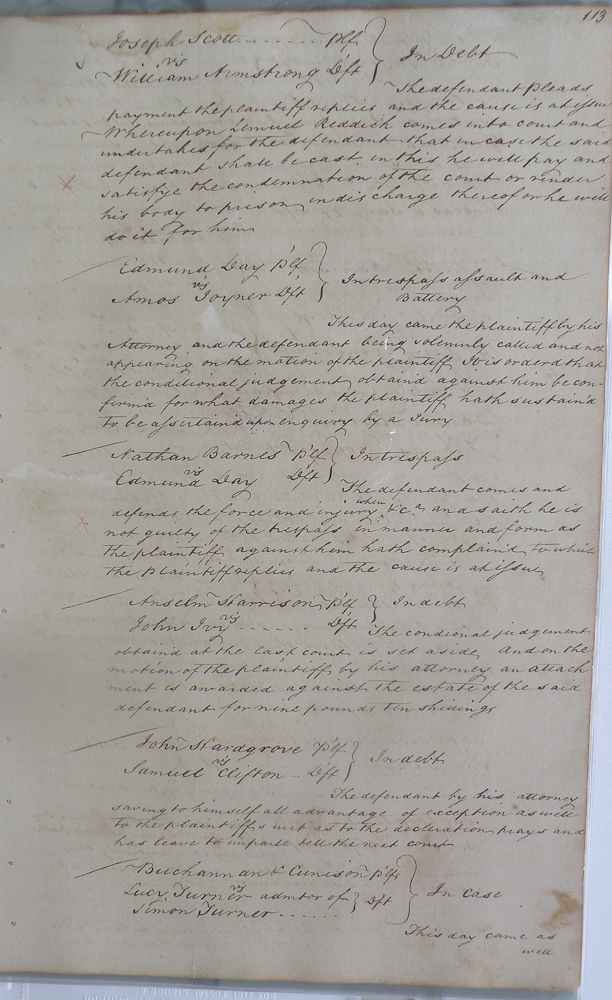 113
Joseph Scott . . . . . . . . Plf
vs
William Armstrong Dft
In Debt
The defendant Pleads
payment the plaintiff replies and the cause is at issue
Whereupon Lemuel Reddick comes into court and
undertakes for the defendant that in case the said
defendant shall be cast in this he will pay and
satisfye the condemnation of the court or render
his body to prison in discharge thereof or he will
do it for him
Edmund Day Plf
vs
Amos Joyner Dft
In trespass assault and
Battery
This day came the plaintiff by his
Attorney and the defendant being solemnly called and not
appearing on the motion of the plaintiff It is orderd that
the conditional judgement obtaind against him be con-
firmd for what damages the plaintiff hath sustaind
to be assertaind upon enquiry by a Jury
Nathan Barnes Plf
vs
Edmund Day Dft
In trespass
The defendant comes and
defends the force and injury when &c and saith he is
not guilty of the trespass in manner and form as
the plaintiff against him hath complaind to which
the Plaintiff replies and the cause is at issue
Anselm Harrison Plf
vs
John Ivy . . . . . . Dft
In debt
The condional judgement
obtaind at the last court is set aside and on the
motion of the plaintiff by his attorney an attach
ment is awarded against the estate of the said
defendant for nine pounds ten shillings
John Hardgrove Plf
vs
Samuel Clifton . . Dft
In debt
The defendant by his attorney
saving to himself all advantage of exception as well
to the plaintiffs writ as to the declaration prays and
has leave to imparle tell the next court
Buchannan & Cunison Plfs
vs
Lucy Turner admtor of
Simon Turner . . . . . .
Dft
In case
This day came as
well